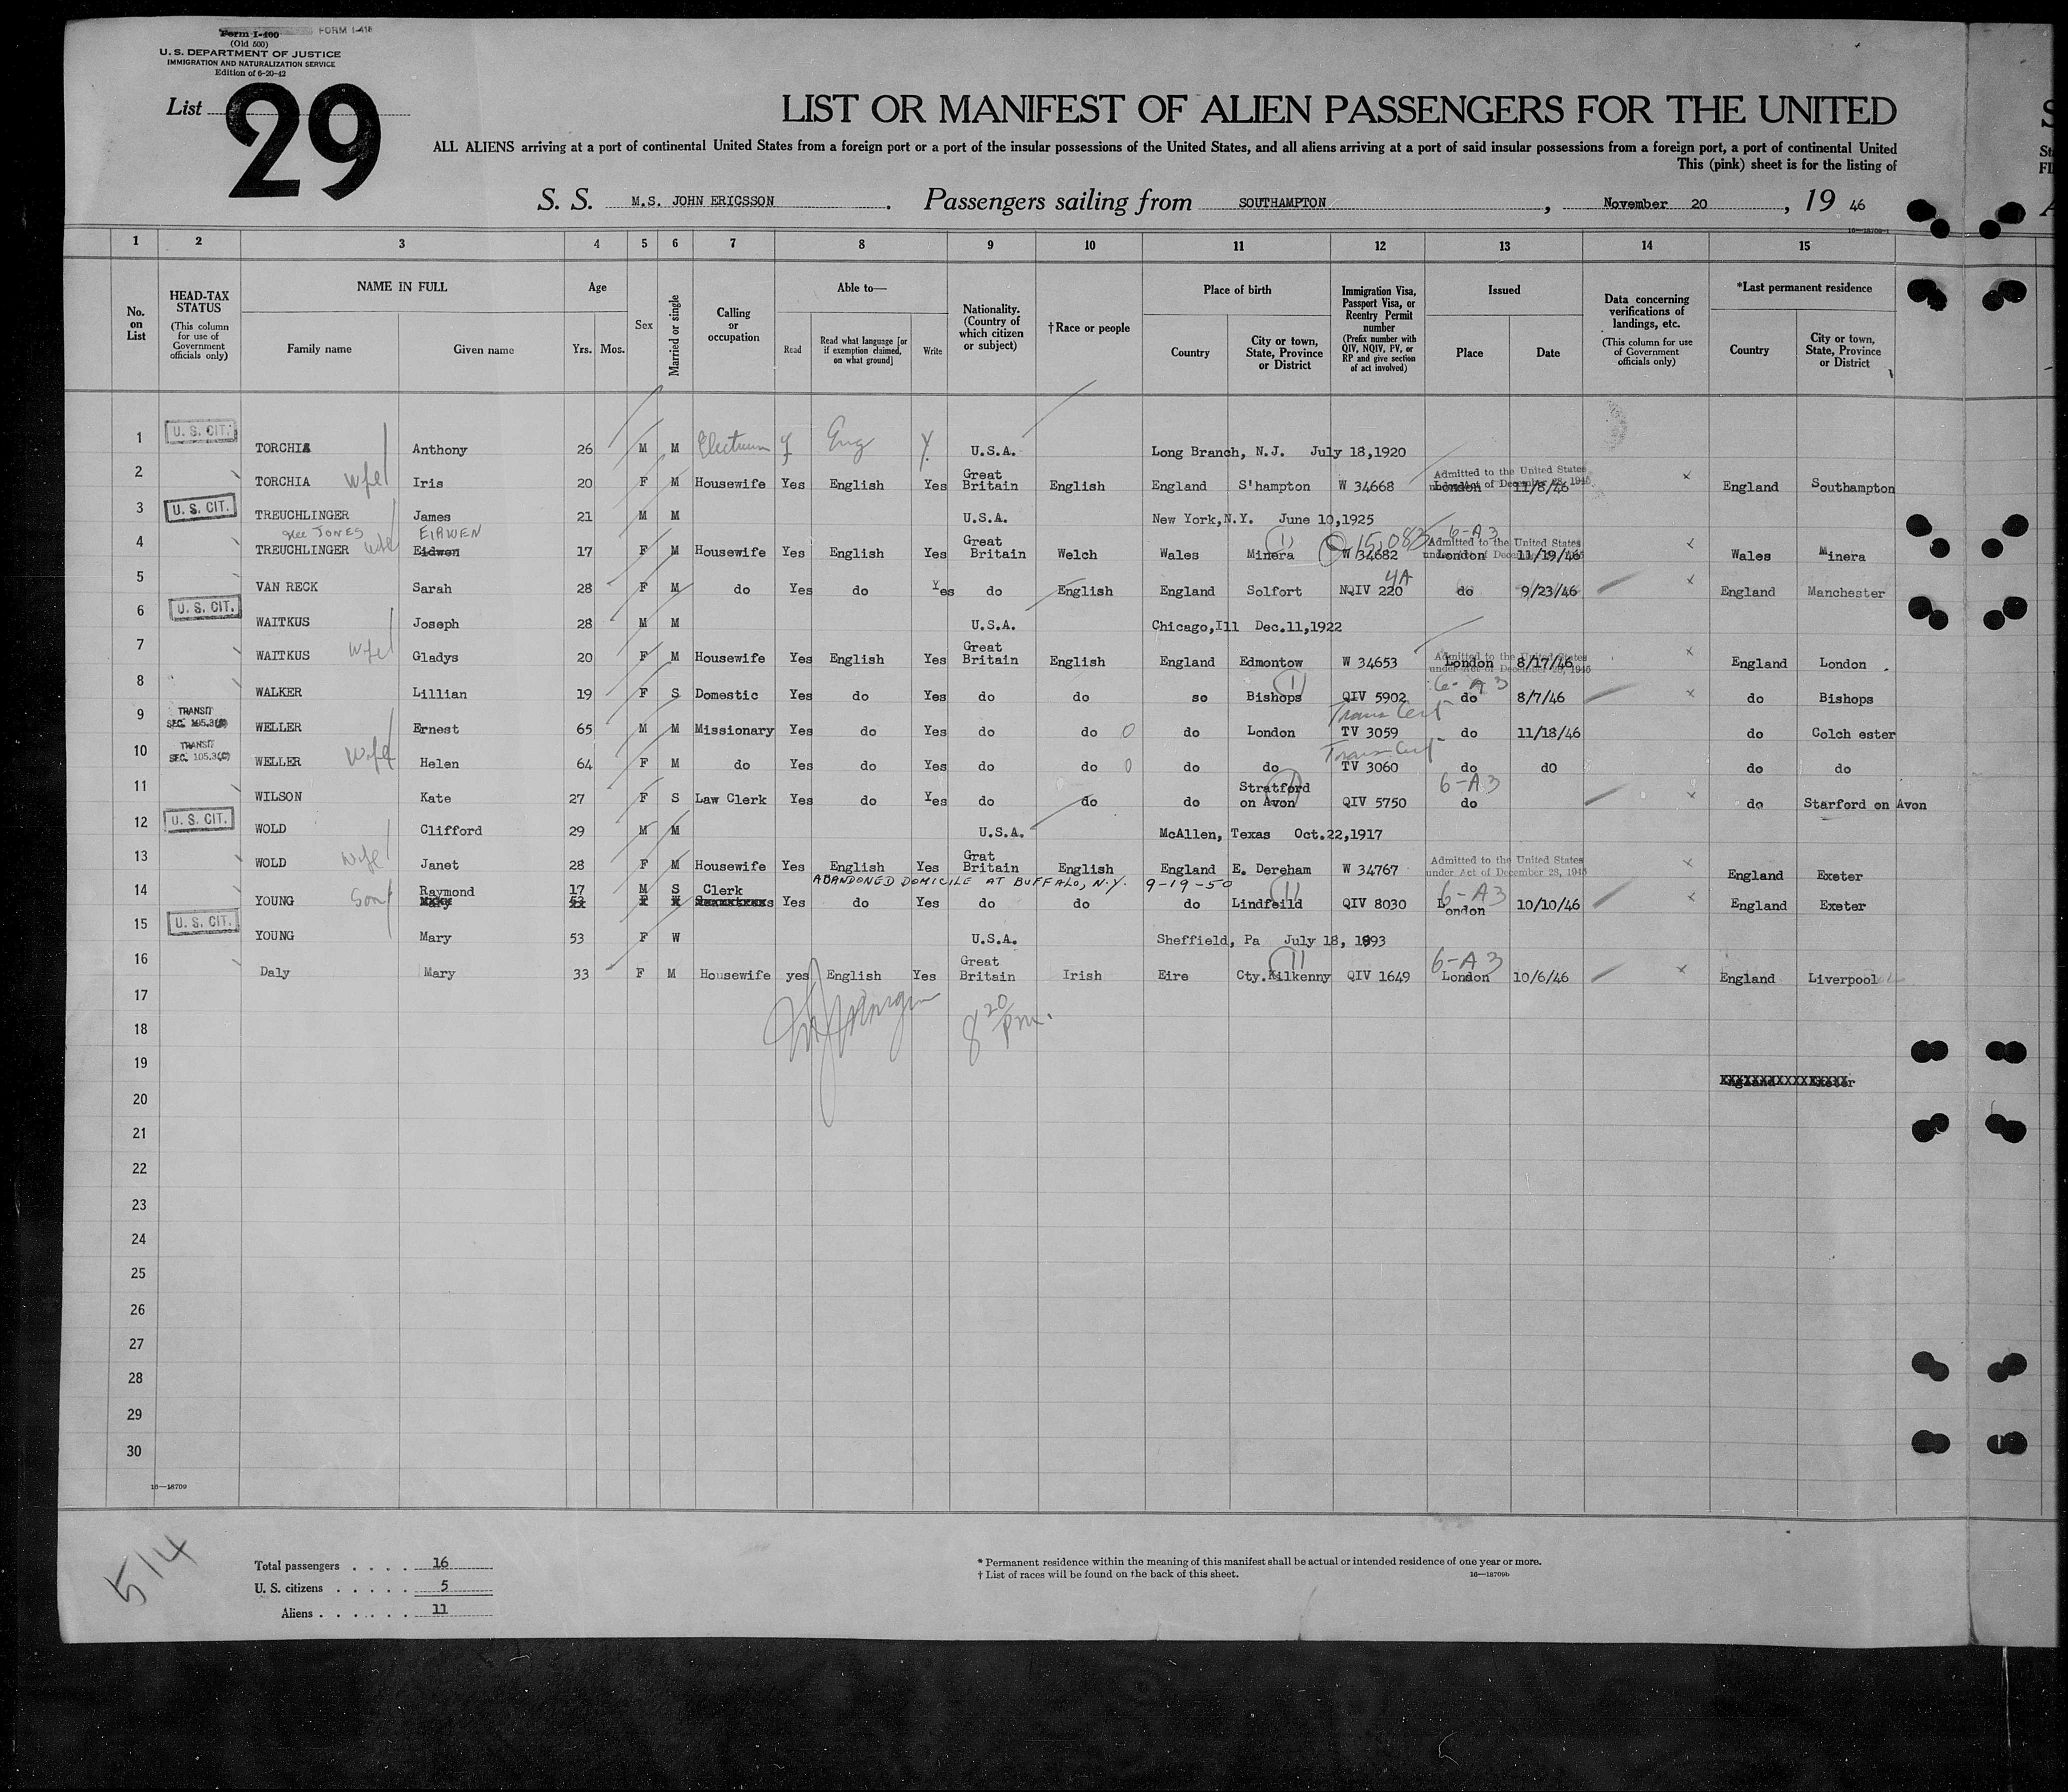 Form I-400 FORM I-418
(Old 500)
U. S. DEPARTMENT OF JUSTICE
IMMIGRATION AND NATURALIZATION SERVICE
Edition of 6-20-42
List 29
LIST OR MANIFEST OF ALIEN PASSENGERS FOR THE UNITED
ALL ALIENS arriving at a port of continental United States from a foreign port or a port of the insular possessions of the United States, and all aliens arriving at a port of said insular possessions from a foreign port, a port of continental United
This (pink) sheet is for the listing of
S. S. M.S. JOHN ERICSSON. Passengers sailing from SOUTHAMPTON, November 20, 19 46
16—18709-1
1 2 3 4 5 6 7 8 9 10 11 12 13 14 15
No. on List
HEAD-TAX STATUS (This column for use of Government officials only)
NAME IN FULL Family name Given name
Age Yrs. Mos.
Sex
Married or single
Calling or occupation
Able to— Read Read what language [or if exemption claimed, on what ground] Write
Nationality. (Country of which citizen or subject)
†Race or people
Place of birth Country City or town, State, Province or District
Immigration Visa, Passport Visa, or Reentry Permit number (Prefix number with QIV, NQIV, PV, or RP and give section of act involved)
Issued Place Date
Data concerning verifications of landings, etc. (This column for use of Government officials only)
*Last permanent residence Country City or town, State, Province or District
1 U. S. CIT. TORCHIA Anthony 26 M M Y Eng Y U.S.A. Long Branch, N.J. July 18,1920
2 TORCHIA wife Iris 20 F M Housewife Yes English Yes Great Britain English England S'hampton W 34668 Admitted to the United States under Act of December 28, 1945 London 11/8/46 x England Southampton
3 U. S. CIT. TREUCHLINGER James 21 M M U.S.A. New York,N.Y. June 10,1925
nee JONES EIRWEN
4 TREUCHLINGER wife Eidwen 17 F M Housewife Yes English Yes Great Britain Welch Wales Minera 1 15,083 W 34682 6-A3 Admitted to the United States under Act of December 28, 1945 London 11/19/46 x Wales Minera
5 VAN RECK Sarah 28 F M do Yes do Yes do English England Solfort NQIV 220 4A do 9/23/46 x England Manchester
6 U. S. CIT. WAITKUS Joseph 28 M M U.S.A. Chicago,Ill Dec.11,1922
7 WAITKUS wife Gladys 20 F M Housewife Yes English Yes Great Britain English England Edmontow W 34653 Admitted to the United States under Act of December 28, 1945 London 8/17/46 x England London .
8 WALKER Lillian 19 F S Domestic Yes do Yes do do so Bishops 1 QIV 5902 6-A3 do 8/7/46 x do Bishops
9 TRANSIT SEC. 105.3(C) WELLER Ernest 65 M M Missionary Yes do Yes do do 0 do London Trans Cert TV 3059 do 11/18/46 do Colch ester
10 TRANSIT SEC. 105.3(C) WELLER Wife Helen 64 F M do Yes do Yes do do 0 do do Trans Cert TV 3060 do dO do do
11 WILSON Kate 27 F S Law Clerk Yes do Yes do do do Stratford on Avon 1 QIV 5750 6-A3 do x do Starford on Avon
12 U. S. CIT. WOLD Clifford 29 M M U.S.A. McAllen, Texas Oct.22,1917
13 WOLD Wife Janet 28 F M Housewife Yes English Yes Grat Britain English England E. Dereham W 34767 Admitted to the United States under Act of December 28, 1945 x England Exeter
ABANDONED DOMICILE AT BUFFALO, N.Y. 9-19-50
14 YOUNG Son Raymond Mary 17 53 M F S W Clerk Yes do Yes do do do Lindfeild 1 QIV 8030 6-A3 London 10/10/46 x England Exeter
15 U. S. CIT. YOUNG Mary 53 F W U.S.A. Sheffield, Pa July 18, 1893
16 Daly Mary 33 F M Housewife yes English Yes Great Britain Irish Eire Cty.Kilkenny 1 QIV 1649 6-A3 London 10/6/46 x England Liverpool
17
8 20 pm.
18
19
England Exeter
20
21
22
23
24
25
26
27
28
29
30
16—18709
514
Total passengers . . . . 16
U. S. citizens . . . . . 5
Aliens . . . . . . 11
* Permanent residence within the meaning of this manifest shall be actual or intended residence of one year or more.
† List of races will be found on the back of this sheet.
16—18709b